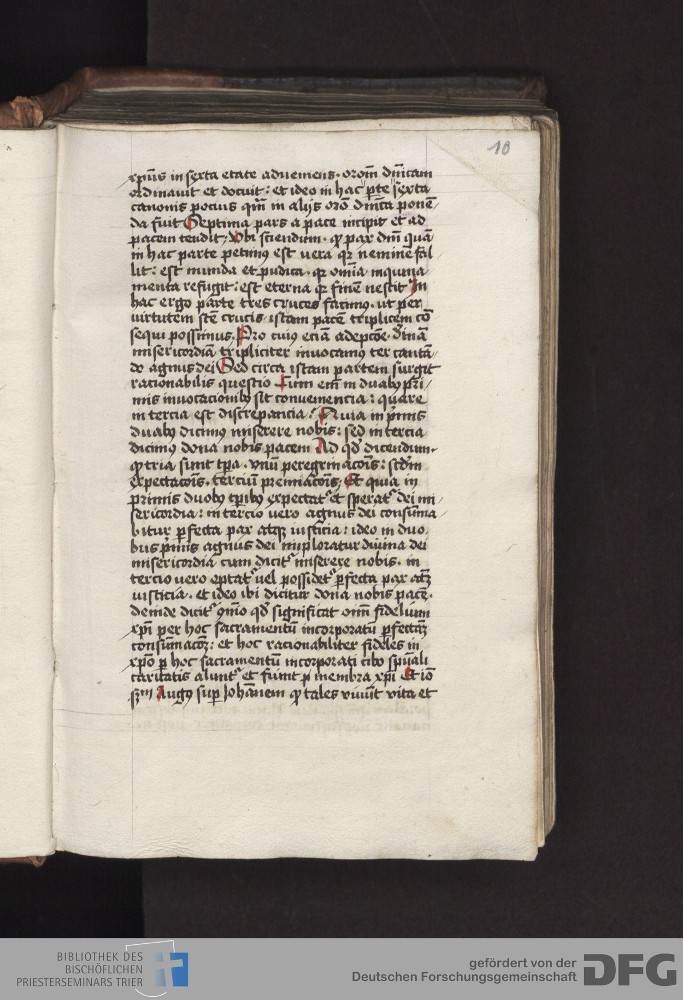 10
xpūs in sexta etate adveniens · orōm dnīcam
ordinavit et docuit : et ideo in hac pte sexta
canonis pocius qm̄ in alijs orō dnīca ponē
da fuit Septima pars a pace incipit et ad
pacem tendit / Ubi sciendum · qɔ pax dnī quā
in hac parte petimus est vera qr neminē fal
lit : est munda et pudica · qr omīa inquina
menta refugit : est eterna qr finē nescit In
hac ergo parte tres cruces facimus · ut per
virtutem scē crucis istam pacē triplicem cō
sequi possimus · Pro cuius eciā adepcōe · dīnā
misericordiā tripliciter invocamus ter cantā
do agnus dei Sed circa istam partem surgit
racionabilis questio Cum em̄ in duabus pri
mis invocacionibus sit convenencia : quare
in tercia est discrepancia / Quia in pmis
duabus dicimus miserere nobis : sed in tercia
dicimus dona nobis pacem Ad qd dicendum ·
qɔ tria sunt tpa · unū peregrinacōis : scdm
expectacōis · terciū premiacōis · Et quia in
primis duobus tpibus expectat et sperat dei mi
sericordia : in tercio vero agnus dei consuma
bitur pfecta pax atqz iusticia : ideo in duo
bus pmis agnus dei imploratur divina dei
misericordia cum dicit miserere nobis · in
tercio vero optat vel possidet pfecta pax atqz
iusticia · et ideo ibi dicitur dona nobis pacē ·
deinde dicit qd significat om̄ fidelium
xpi per hoc sacramentū incorporatū pfectāqz
consumacōez : et hoc racionabiliter fideles in
xpo p hoc sacramentū incorporati cibo spūali
caritatis alunt et fiunt membra xpi Et iō
scdm Augus sup Johannem qɔ tales vivūt vita et
BIBLIOTHEK DES
BISCHÖFLICHEN
PRIESTERSEMINARS TRIER
gefördert von der
Deutschen Forschungsgemeinschaft
DFG